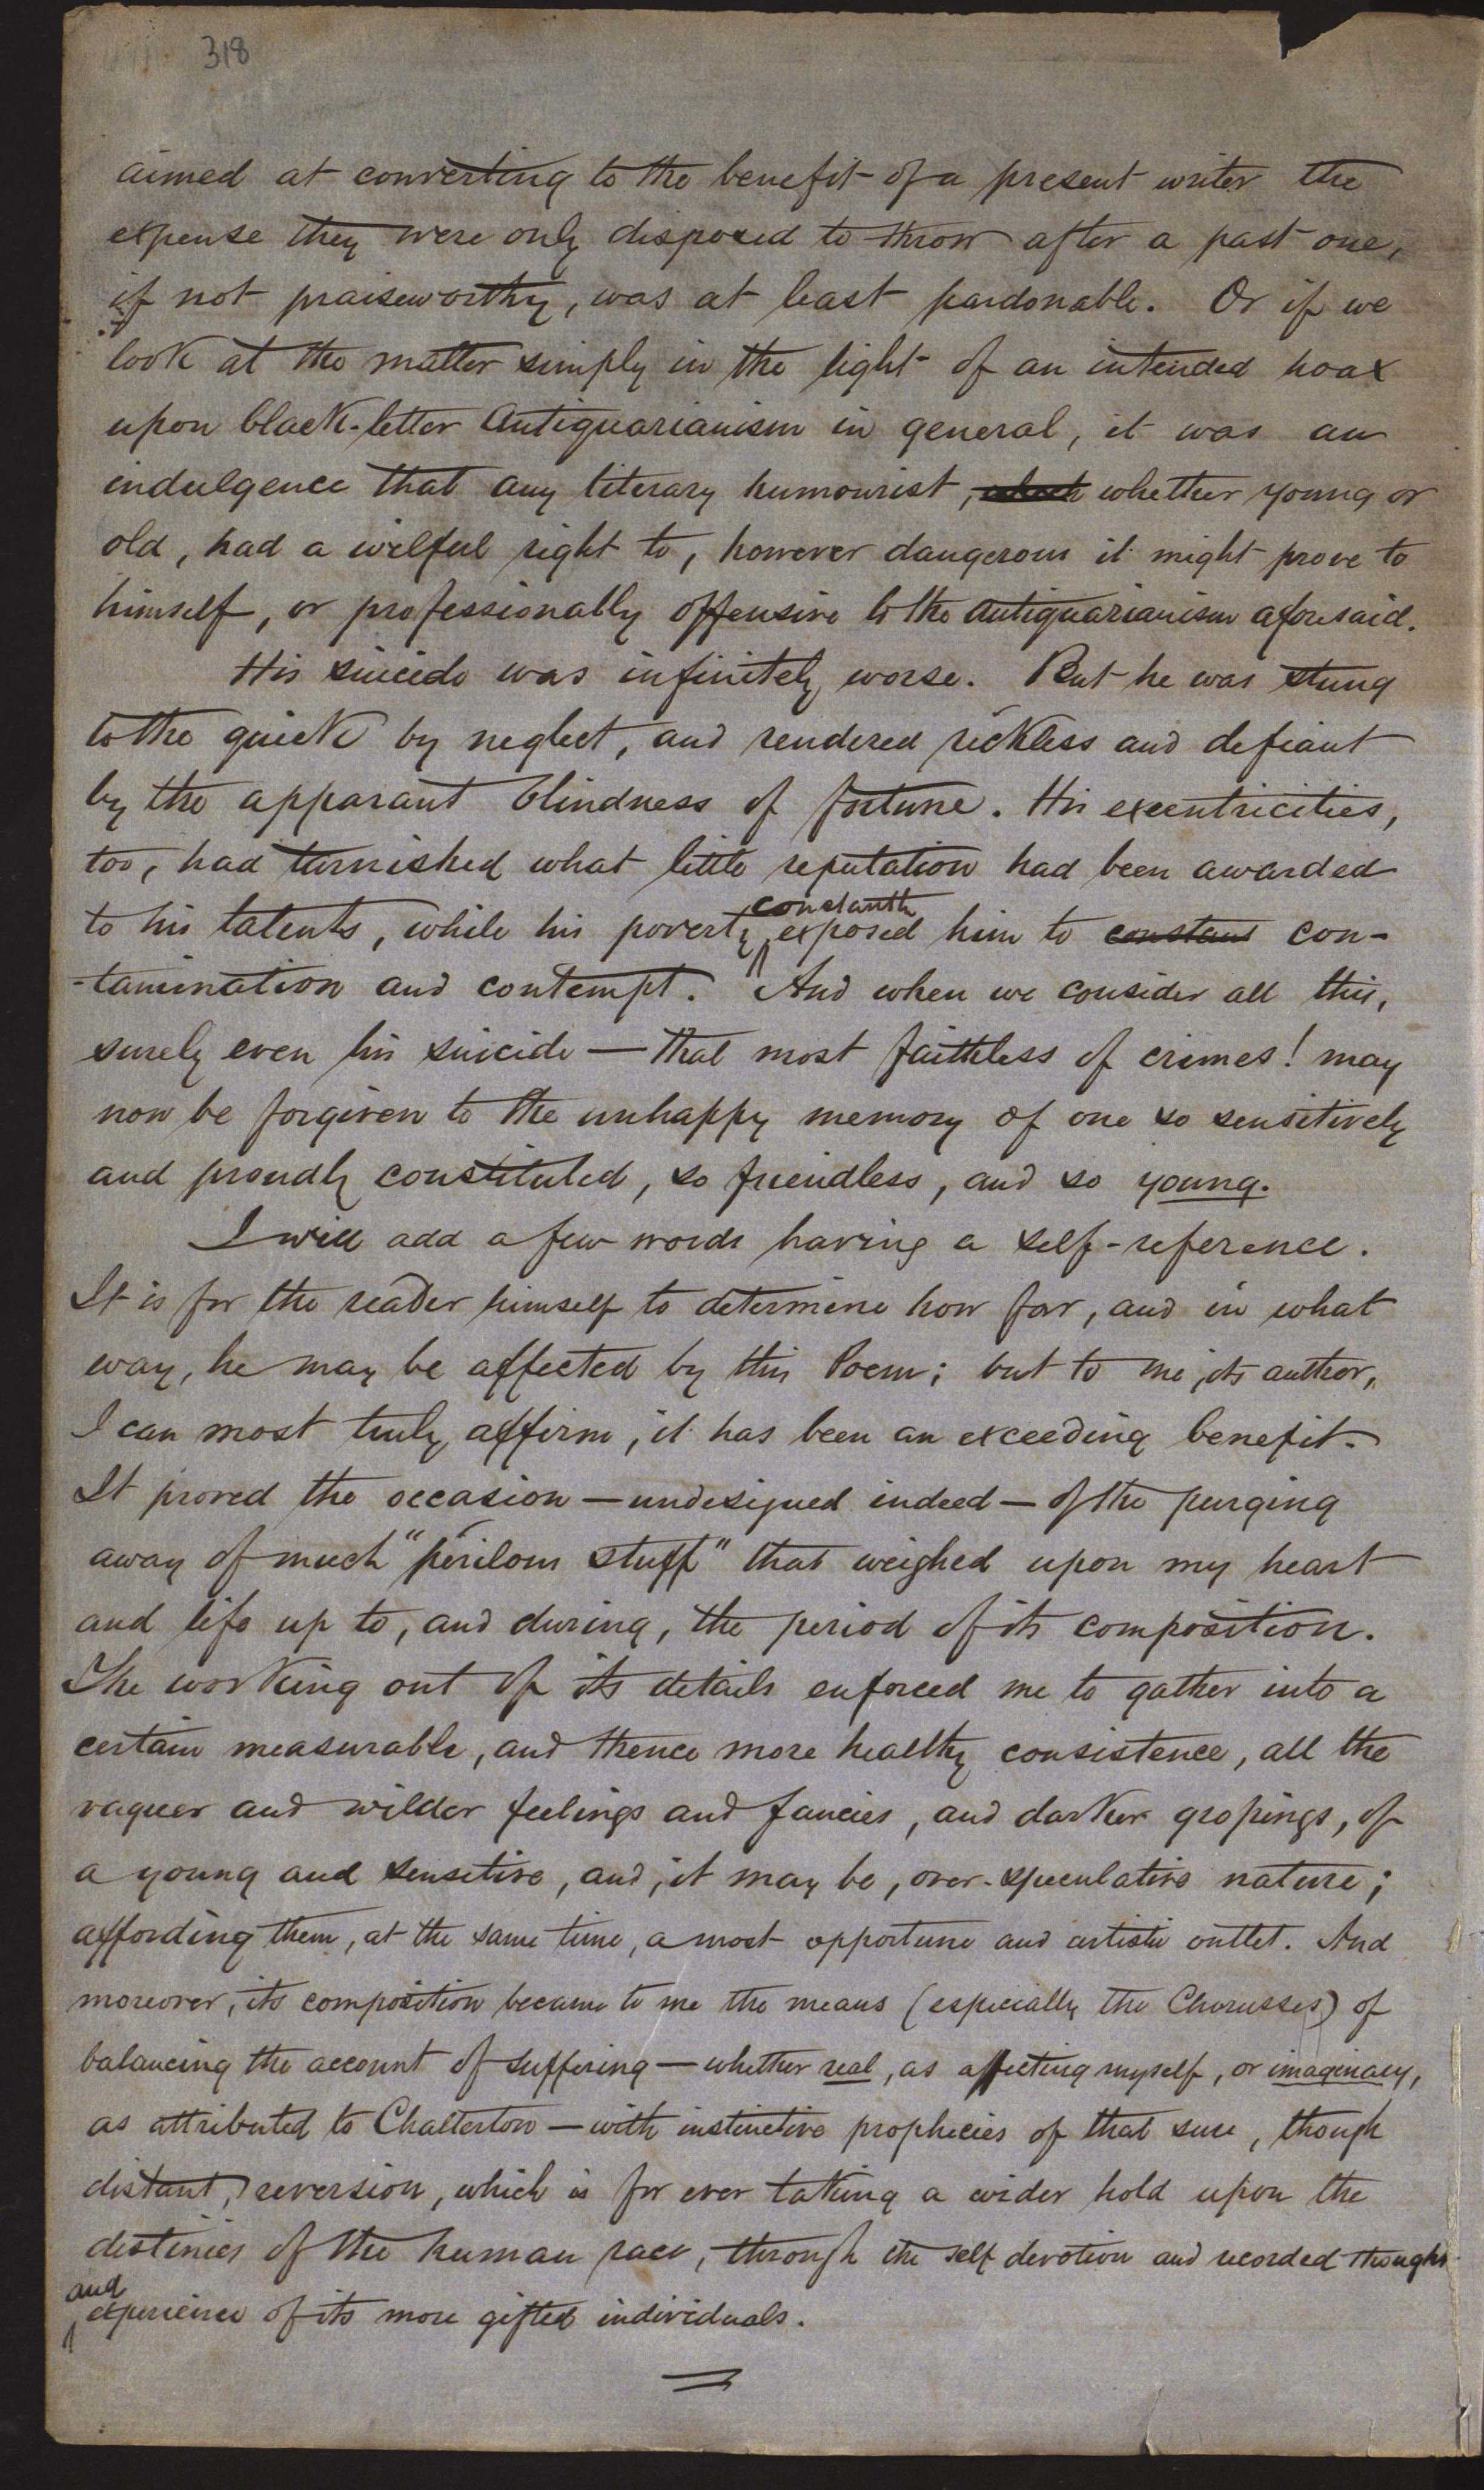 318
aimed at converting to the benefit of a present writer the
expense they were only disposed to throw after a past one,
if not praiseworthy, was at least pardonable. Or if we
look at the matter simply in the light of an intended hoax
upon black-letter Antiquarianism in general, it was an
indulgence that any literary humourist, whether young or
old, had a wilful right to, however dangerous it might prove to
himself, or professionally offensive to the Antiquarianism aforesaid.
His suicide was infinitely worse. But he was stung
to the quick by neglect, and rendered reckless and defiant
by the apparant blindness of fortune. His excentricities,
too, had turnished what little reputation had been awarded
constantly
to his talents, while his poverty exposed him to constant con-
-tamination and contempt. And when we consider all this,
surely even his suicide — that most faithless of crimes! may
now be forgiven to the unhappy memory of one so sensitively
and proudly constituted, so friendless, and so young.
I will add a few words having a self-reference.
It is for the reader himself to determine how far, and in what
way, he may be affected by this Poem; but to me, its author,
I can most truly affirm, it has been an exceeding benefit.
It proved the occasion — undesigned indeed — of the purging
away of much "perilous stuff" that weighed upon my heart
and life up to, and during, the period of its composition.
The working out of its details enforced me to gather into a
certain measurable, and thence more healthy consistence, all the
vaguer and wilder feelings and fancies, and darker gropings, of
a young and sensitive, and, it may be, over-speculative nature;
affording them, at the same time, a most opportune and artistic outlet. And
moreover, its composition became to me the means (especially the Chorusses) of
balancing the account of suffering — whether real, as affecting myself, or imaginary,
as attributed to Chatterton — with instinctive prophecies of that sure, though
distant, reversion, which is for ever taking a wider hold upon the
destinies of the human race, through the self devotion and recorded thought
and
experience of its more gifted individuals.